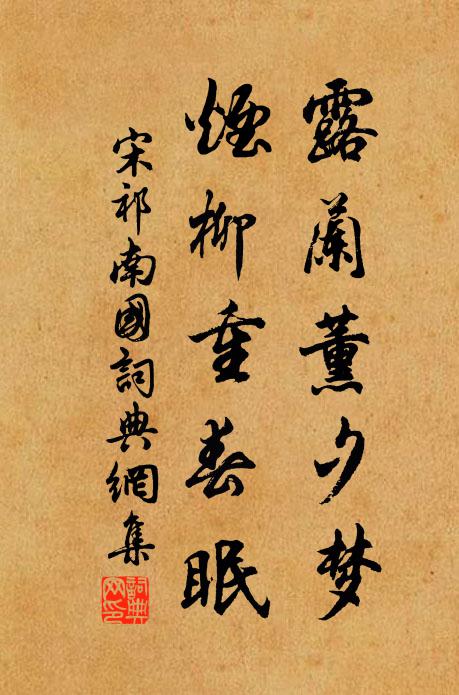 露蘭薰夕梦
煙柳重春眠
宋祁南國詞典網集
詞典網印